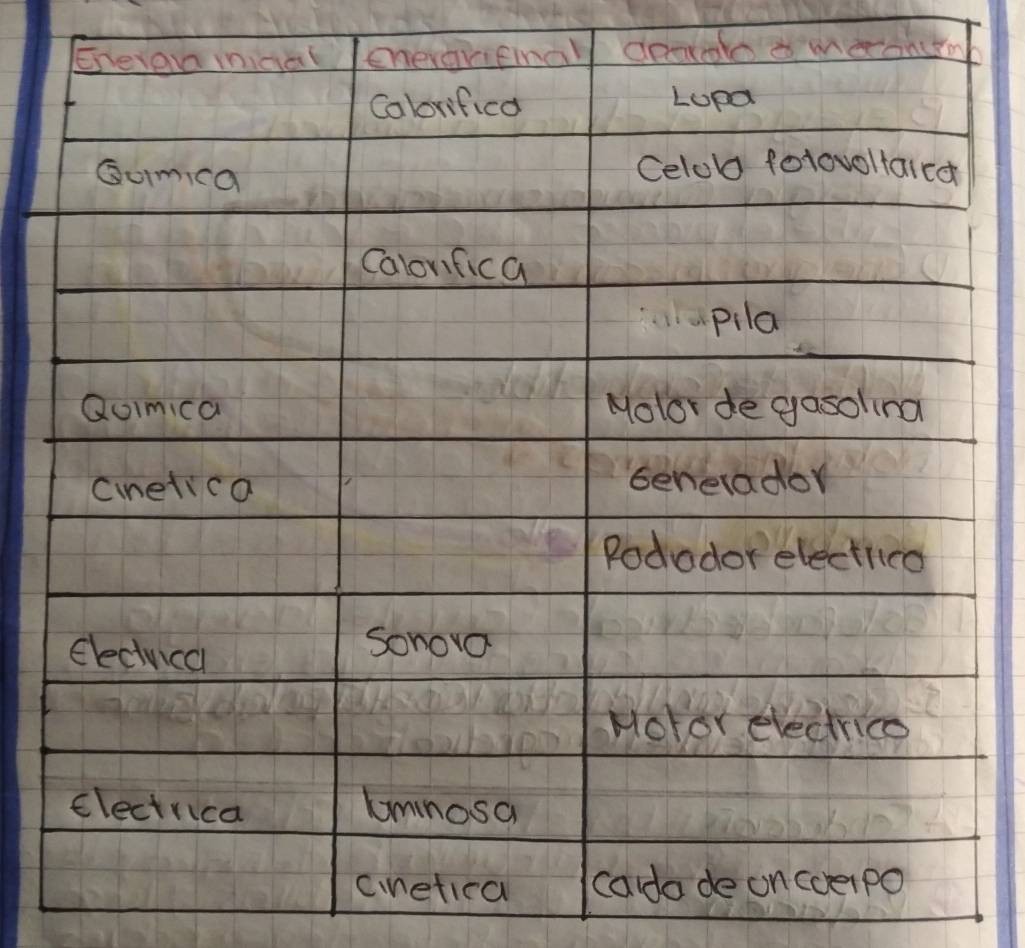 Energia inicial energia final aparato o mecanismo
Calorifica Lupa
Quimica Celula fotovoltaica
Calorifica
Pila
Quimica Motor de gasolina
cinetica Generador
Radiador electrico
Electrica Sonora
Motor electrico
Electrica luminosa
cinetica caida de un cuerpo